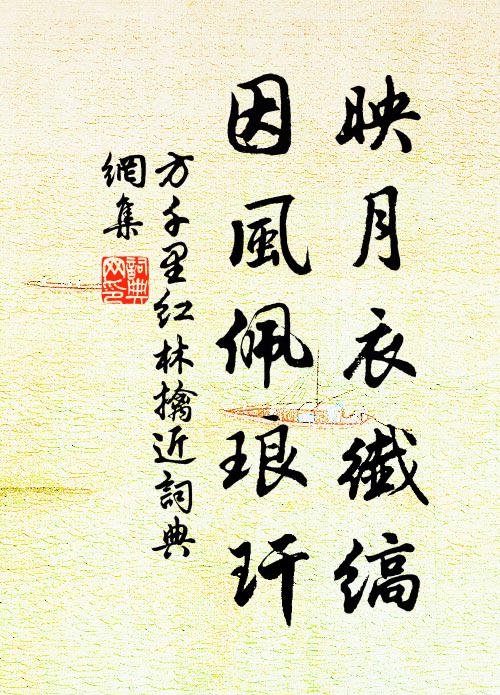 映月衣纖縞
因風佩琅玕
方千里紅林擒近詞典
網集
詞典
网集